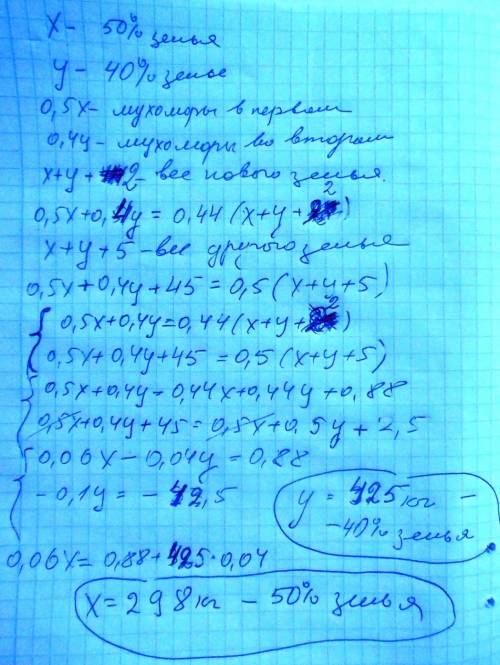 x - 50% зелья
y - 40% зелье
0,5x - мухоморы в первом
0,4y - мухоморы во втором
x+y+2 - вес нового зелья.
0,5x+0,4y = 0,44(x+y+2)
x+y+5 - вес другого зелья
0,5x+0,4y+45 = 0,5(x+y+5)
0,5x+0,4y=0,44(x+y+2)
0,5x+0,4y+45=0,5(x+y+5)
0,5x+0,4y=0,44x+0,44y+0,88
0,5x+0,4y+45=0,5x+0,5y+2,5
0,06x-0,04y=0,88
-0,1y = -42,5
y = 425 кг -
-40% зелья
0,06x=0,88+425·0,04
x=298 кг - 50% зелья